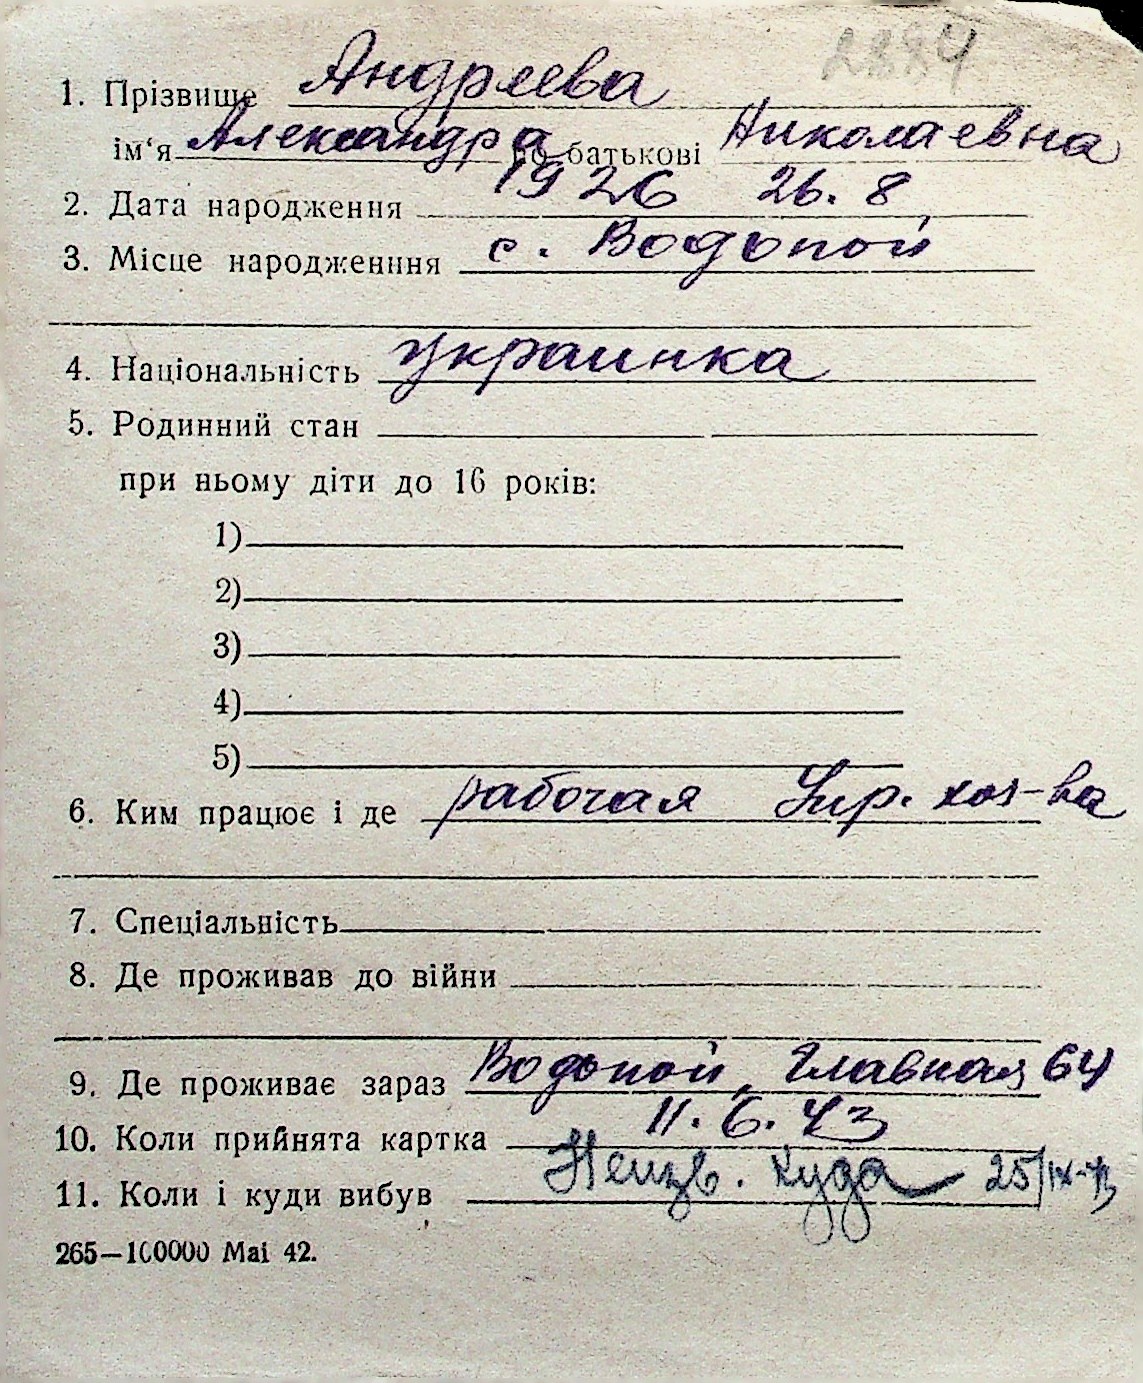 2884
1. Прізвище Андреева
ім‘я Александра по батькові Николаевна
2. Дата народження 1926 26. 8
3. Місце народженння с. Водопой
4. Національність Украинка
5. Родинний стан
при ньому діти до 16 років:
1)
2)
3)
4)
5)
6. Ким працює і де рабочая хоз-ва
7. Спеціальність
8. Де проживав до війни
9. Де проживає зараз Водопой, Главная 64
10. Коли прийнята картка 11. 6. 43
11. Коли і куди вибув Неизв. куда 25/IX-43
265—100000 Mai 42.